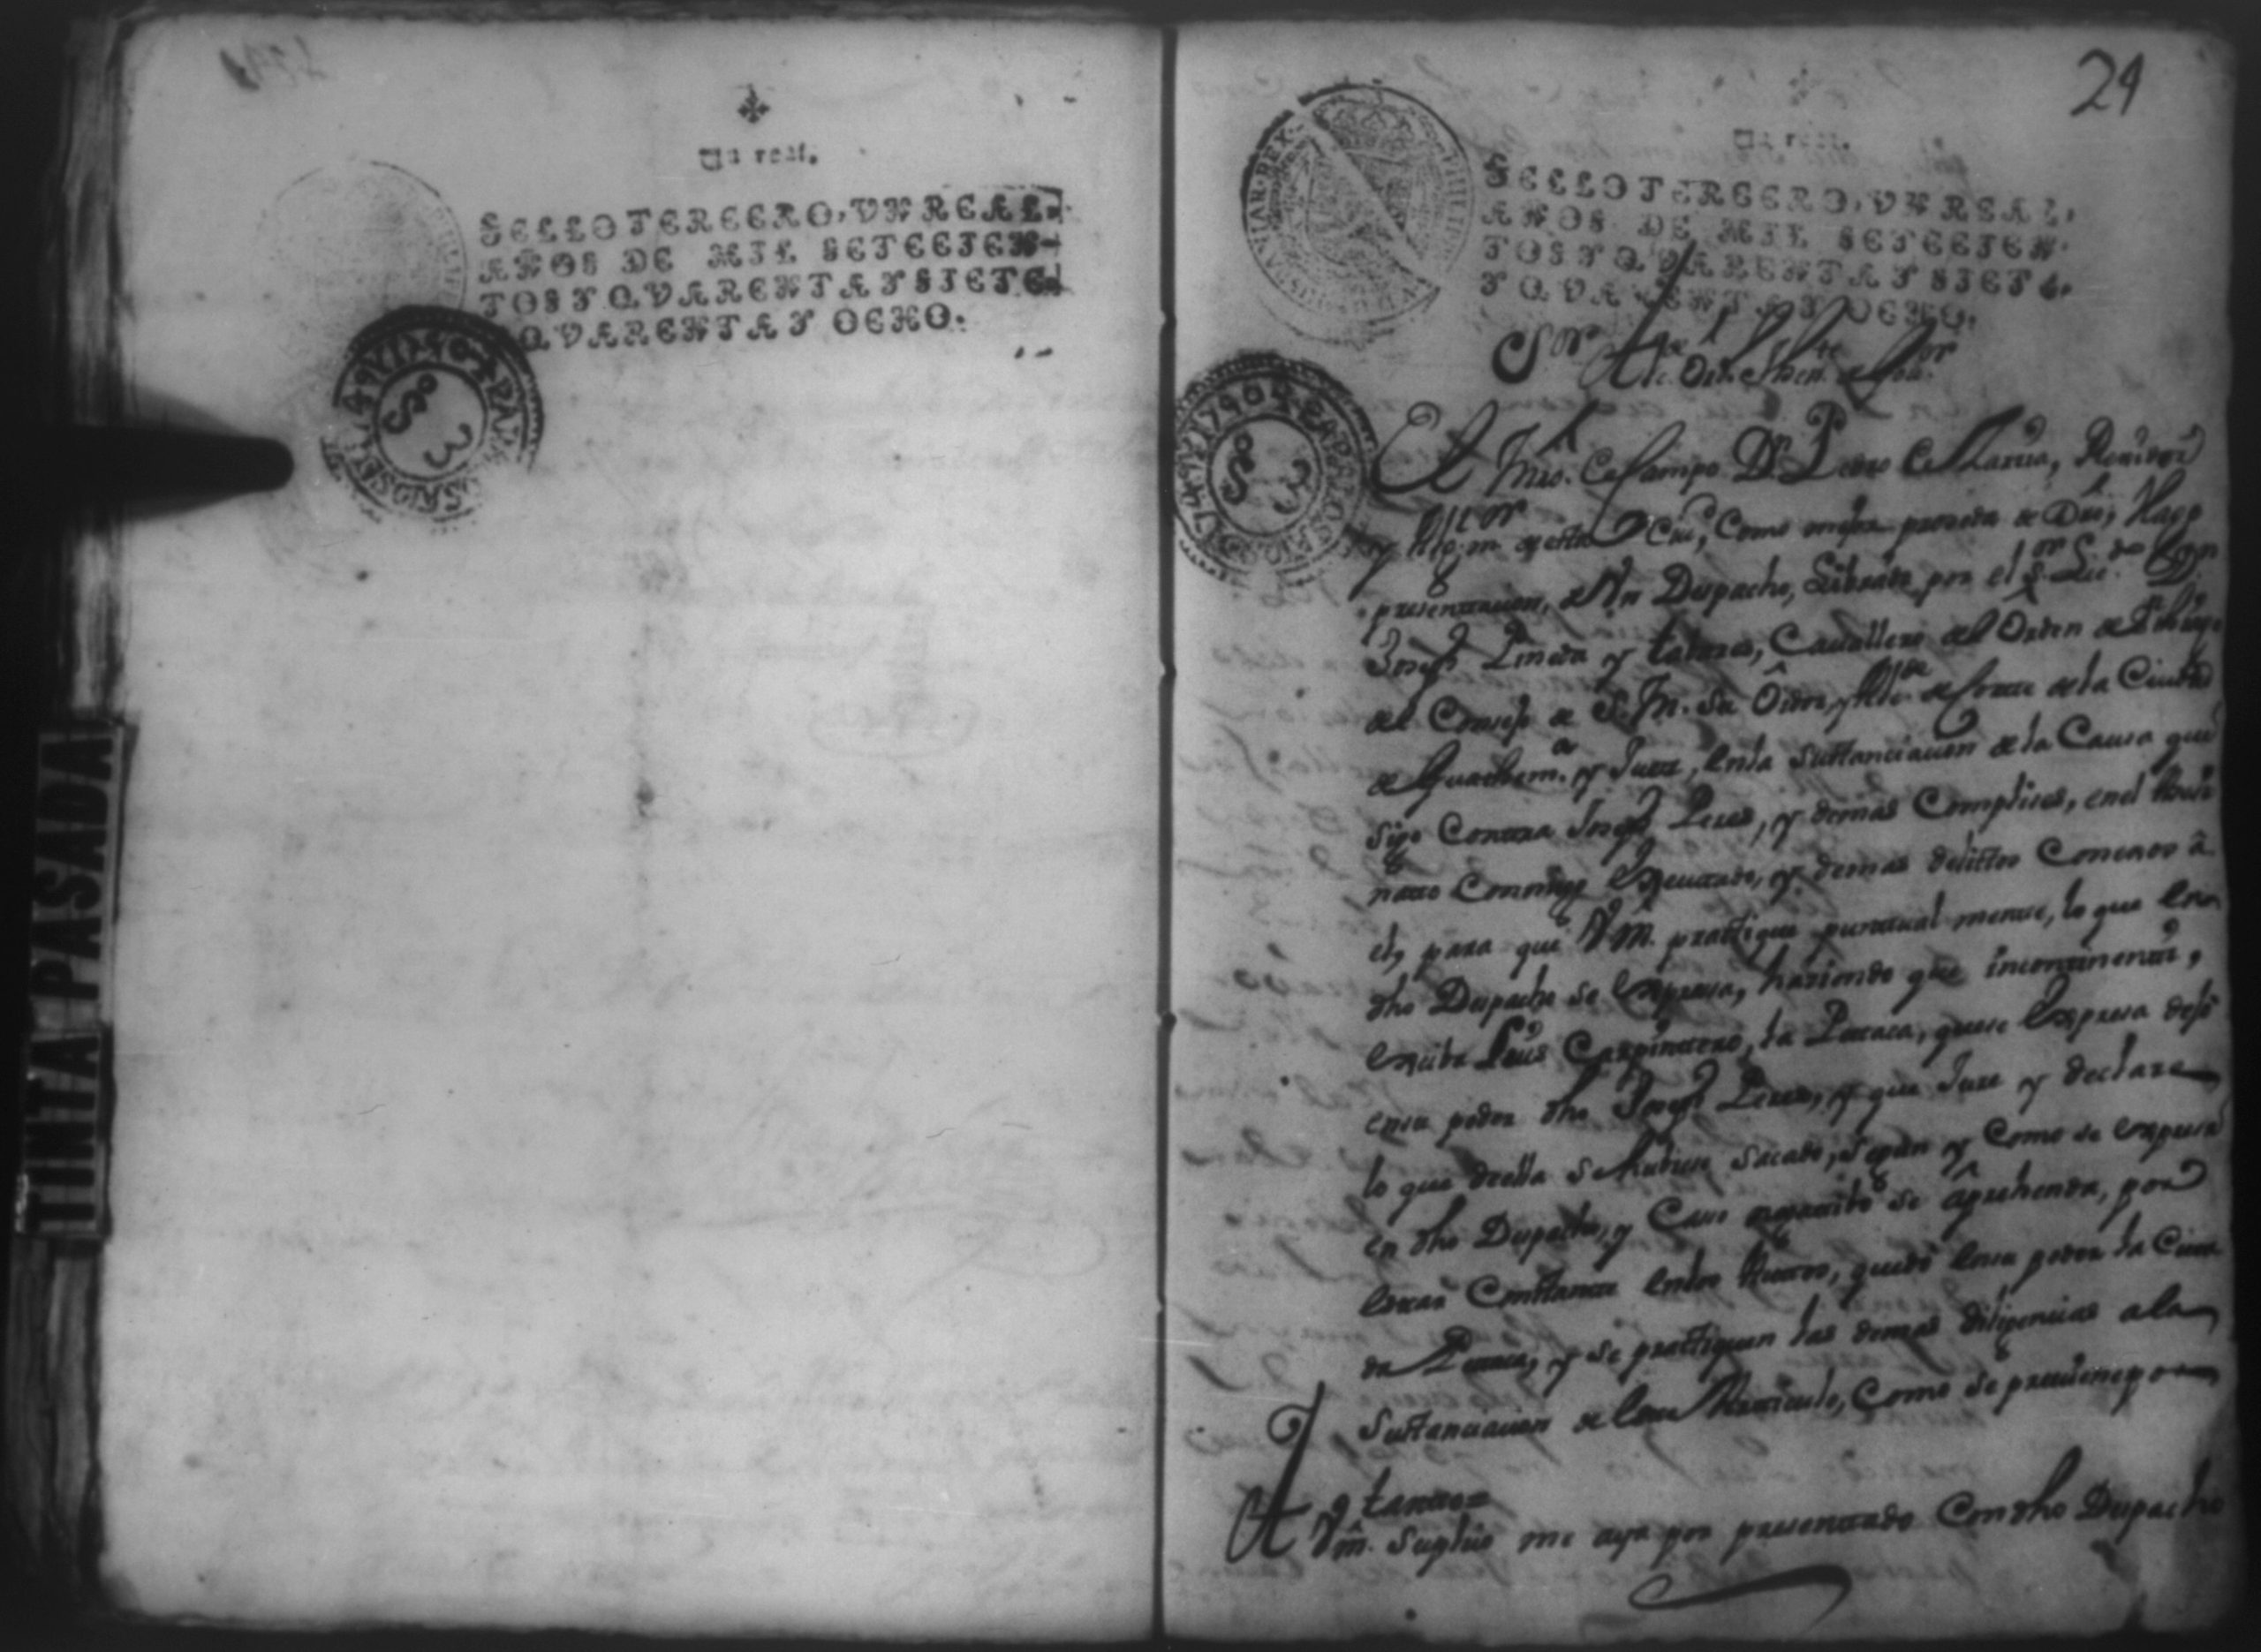 Un real.
SELLO TERCERO, VN REAL,
AÑOS DE MIL SETECIEN-
TOS Y QVARENTA Y SIETE
QVARENTA Y OCHO.
TINTA PASADA
24
Un real.
SELLO TERCERO, VN REAL,
AÑOS DE MIL SETECIEN-
TOS Y QVARENTA Y SIETE,
Y QVARENTA Y OCHO.
Sor
El Mro. de Campo Dn. Pedro de Regidor
y de esta Ciud, Como mejor proceda de Dro, Hago
presentacion, de Vn Despacho, Librado por el Sor. Lic.do Don
Joseph Pineda y tabares, Cauallero del Orden de
del Consejo de S. M. su Oidor, y Alcde. de Corte de la Ciudad
de Guathema. y Juez, en la Sustanciacion de la Causa que
sigo Contra Joseph Peres, y demas Complices, en el
nato Conmigo Executado, y demas delittos Conexos â
el, para que Vm. practique puntual mente, lo que en
dho Despacho se Expresa, haziendo que incontinenti,
Exsiba Luis Carpintero, la Petaca, que se Expresa dejó
en su poder dho Joseph Peres, y que Jure y declare
lo que de ella se hubiere Sacado, segun y Como se expresa
en dho Despacho, y Caso se âprehenda, por
estar Constante en los Autos, quedó en su poder la Cita
da Petaca, y se practiquen las demas diligencias a la
Sustanciacion de este Articulo, Como se preuiene por
tanto=
A Vm. Suplico me aya por presentado Con dho Despacho